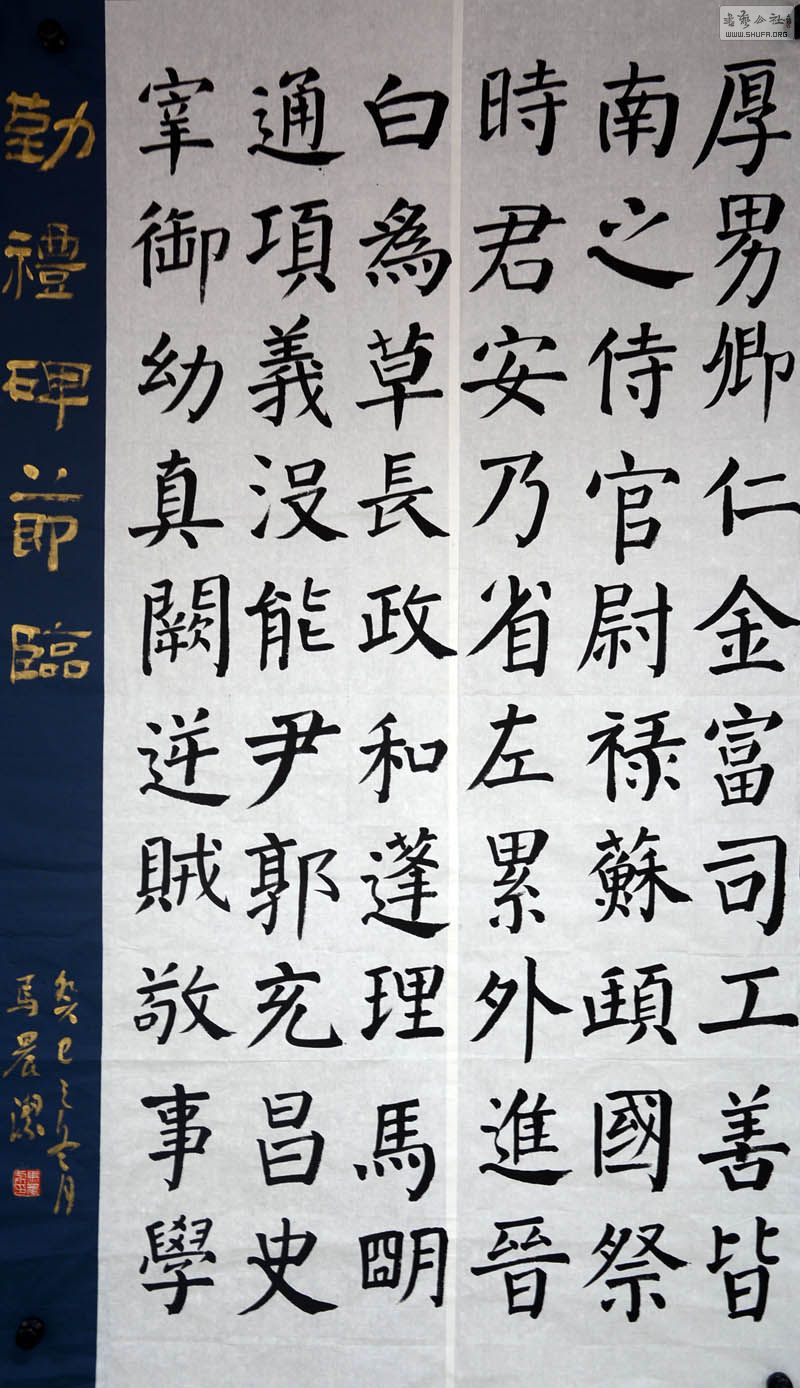 厚男卿仁金富司工善皆
南之侍官尉禄蘇頵國祭
時君安乃省左累外進晉
白為草長政和蓬理馬明
通項義没能尹郭充昌史
宰御幼真闕逆賊敬事學
勤禮碑節臨
癸巳之冬月
馬晨潔
書藝公社
WWW.SHUFA.ORG